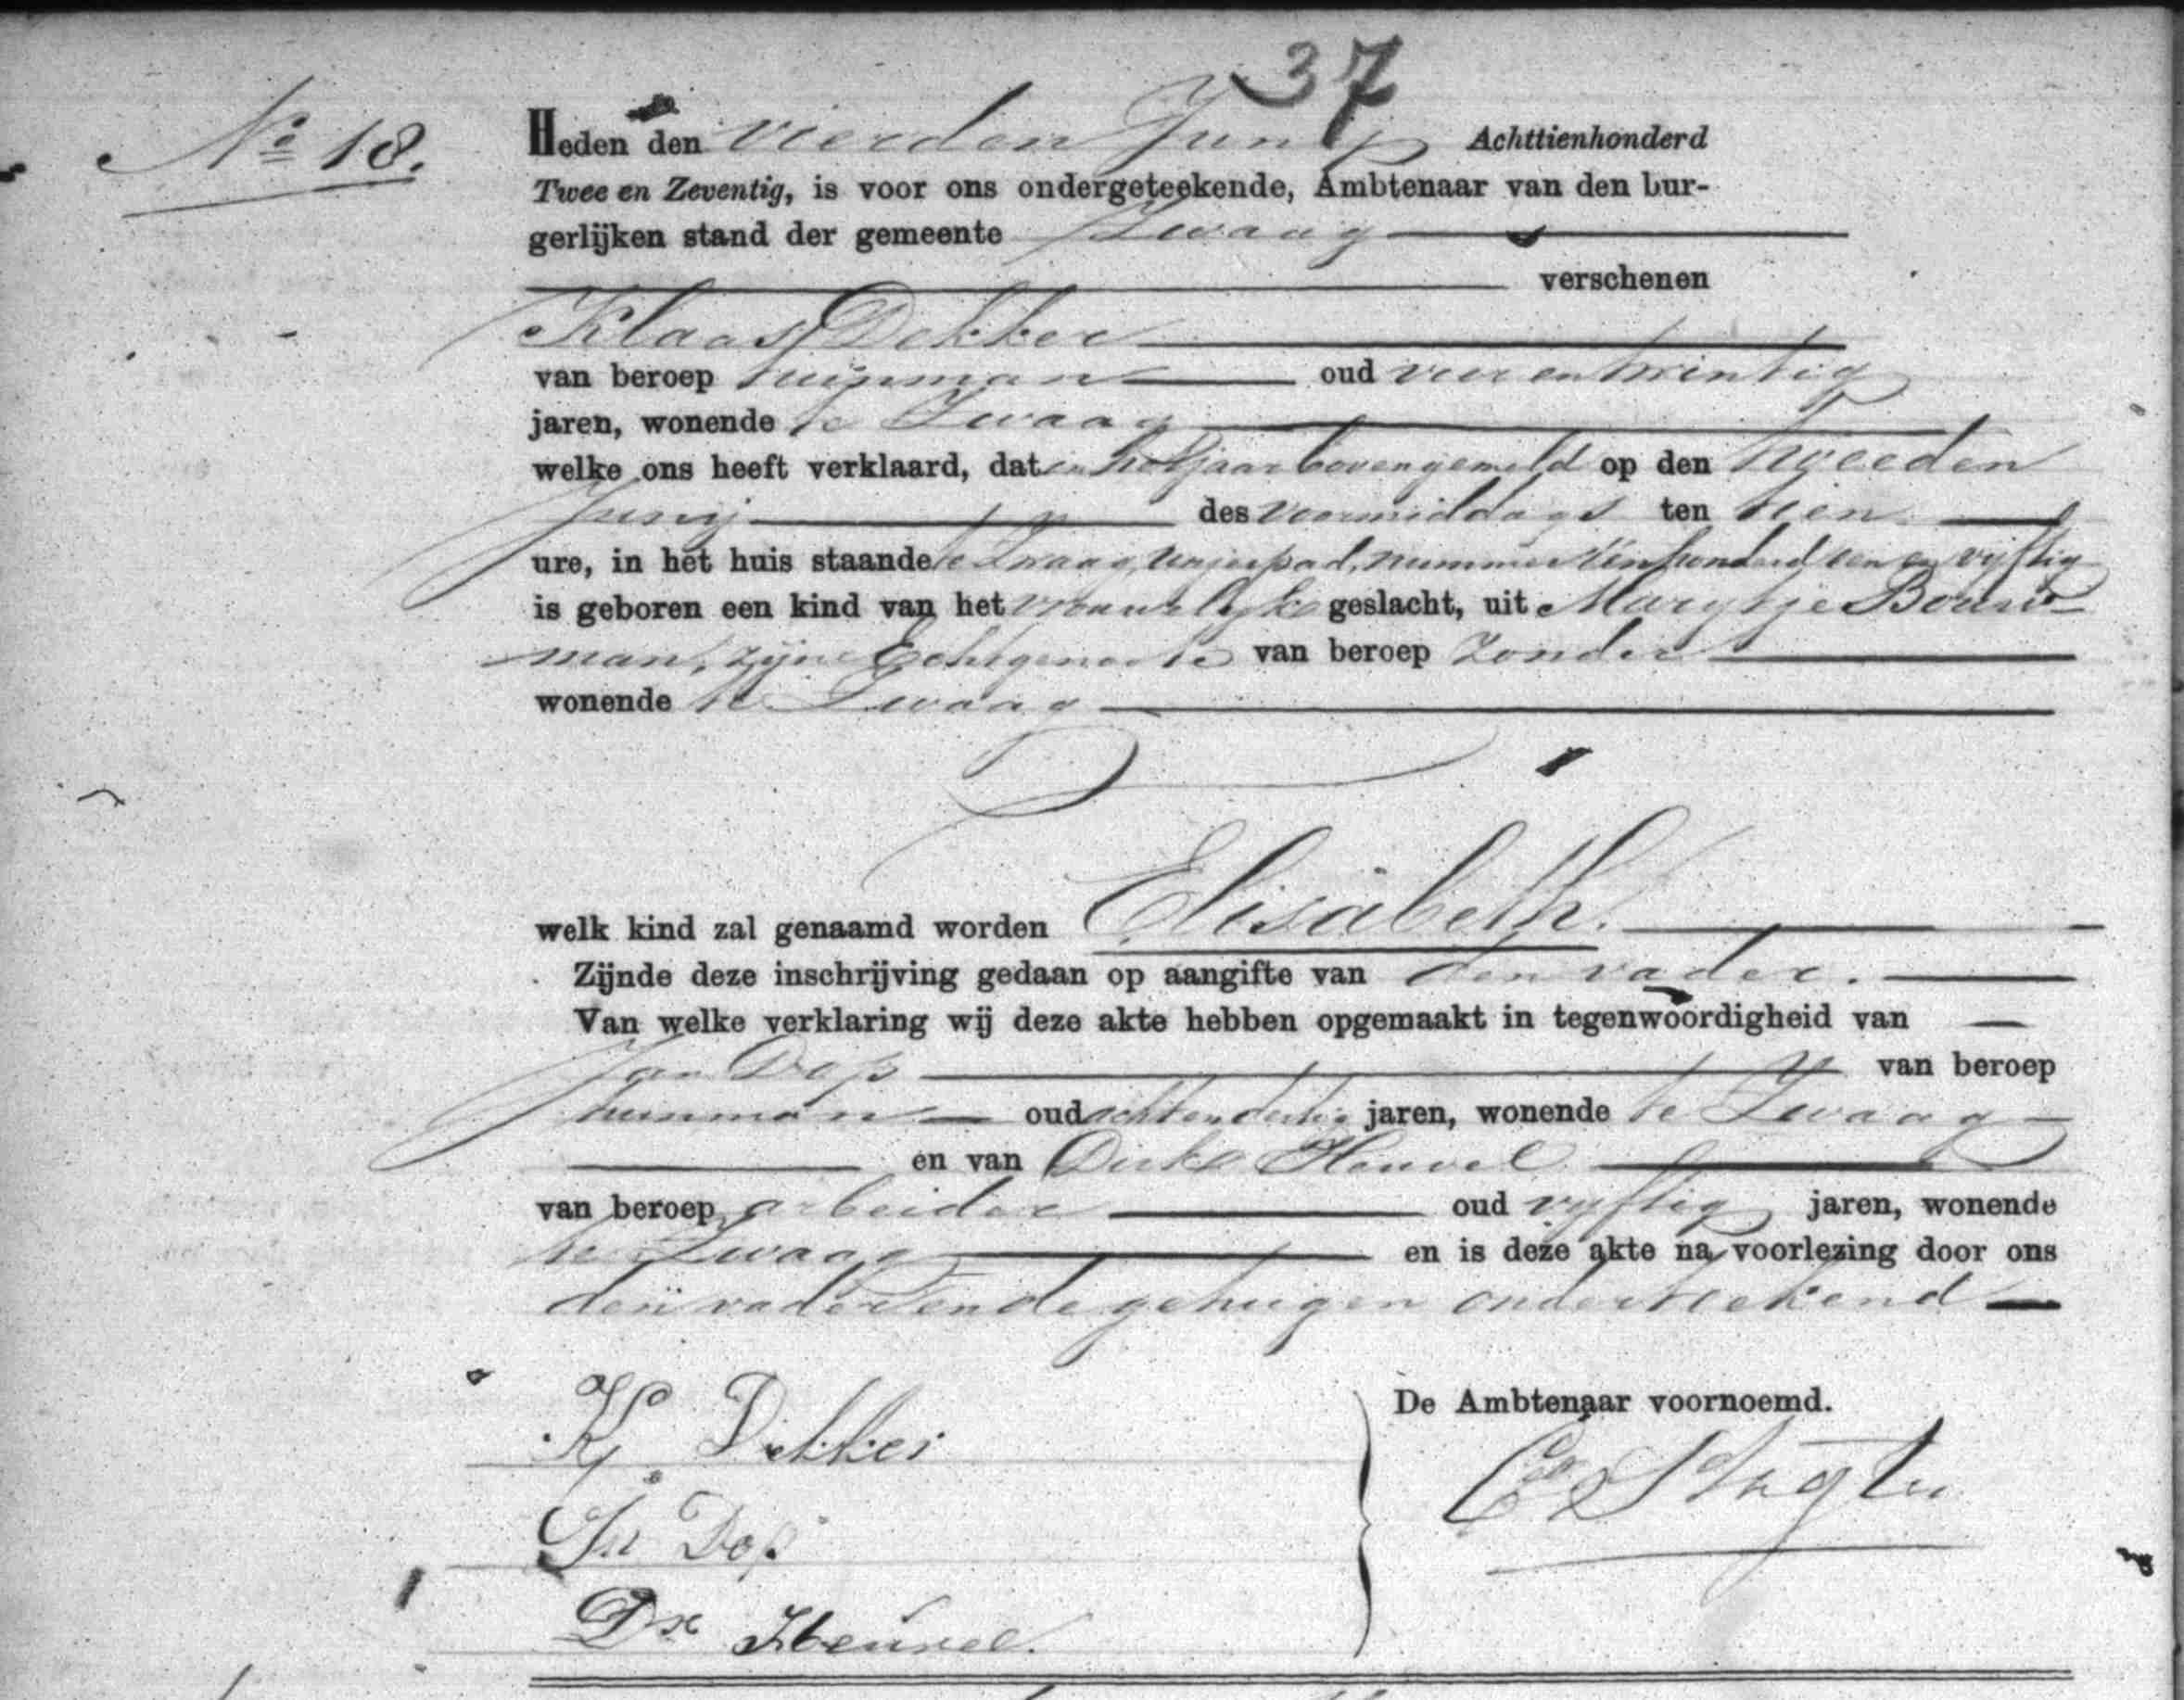 37
No 18.
Heden den vierden Junij Achttienhonderd
Twee en Zeventig, is voor ons ondergeteekende, Ambtenaar van den bur-
gerlijken stand der gemeente Zwaag
verschenen
Klaas Dekker
van beroep tuinman oud vier en twintig
jaren, wonende te Zwaag
welke ons heeft verklaard, dat in het jaar bovengemeld op den tweeden
Junij des voormiddags ten tien
ure, in het huis staande te Zwaag, nummer een honderd een en vijftig
is geboren een kind van het vrouwelijke geslacht, uit Marytje Bouw-
man, zijne Echtgenoote van beroep zonder
wonende te Zwaag
welk kind zal genaamd worden Elisabeth.
Zijnde deze inschrijving gedaan op aangifte van den vader.
Van welke verklaring wij deze akte hebben opgemaakt in tegenwoordigheid van
Jan Dop van beroep
tuinman oud acht en dertig jaren, wonende te Zwaag
en van Dirk Heuvel
van beroep arbeider oud vyftig jaren, wonende
te Zwaag en is deze akte na voorlezing door ons
den vader en de getuigen onderteekend
K Dekker
De Ambtenaar voornoemd.
Jn Dop
Dk Heuvel.